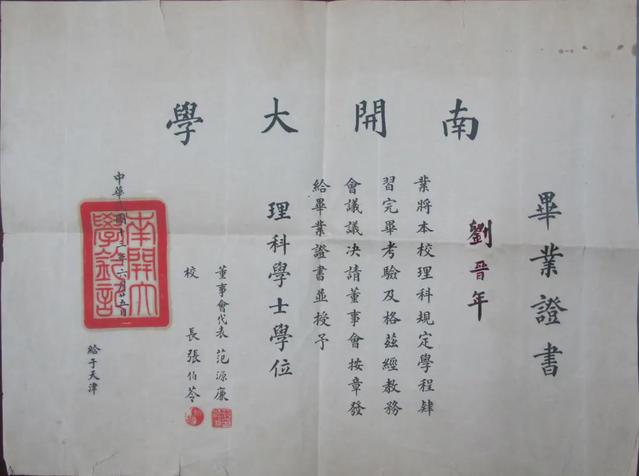 南開大學
畢業證書
劉晋年
業將本校理科規定學程肄
習完畢考驗及格茲經教務
會議議决請董事會按章發
給畢業證書並授予
理科學士學位
董事會代表 范源廉
校長 張伯苓
中華 國十三年六月 日
南開大學鈐記
給于天津